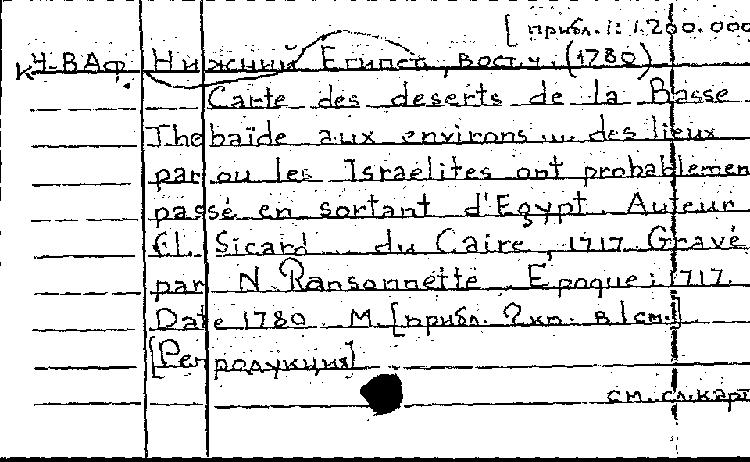 [прибл. 1: 1.200.000
К4-ВАф. Нижний Египет, вост.ч. (1780)
Carte des deserts de la Basse
Thebaïde aux environs ... des lieux
par ou les Israélites ont probablemen
passé en sortant d'Egypt. Auteur
Cl. Sicard ... du Caire, 1717. Gravé
par N. Ransonnette. Epoque: 1717.
Date 1780. M. [прибл. 2км. в 1см.]
[Репродукция]
см. сл. кар